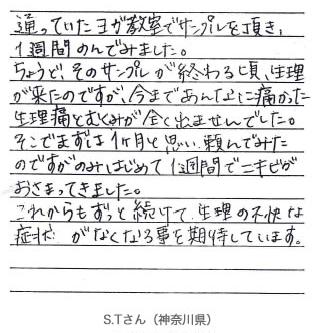 通っていたヨガ教室でサンプルを頂き、
1週間のんでみました。
ちょうど、そのサンプルが終わる頃、生理
が来たのですが、今まであんなに痛かった
生理痛とむくみが全く出ませんでした。
そこでまずは1ヶ月と思い、頼んでみた
のですがのみはじめて1週間でニキビが
おさまってきました。
これからもずっと続けて、生理の不快な
症状がなくなる事を期待しています。
S.Tさん（神奈川県）